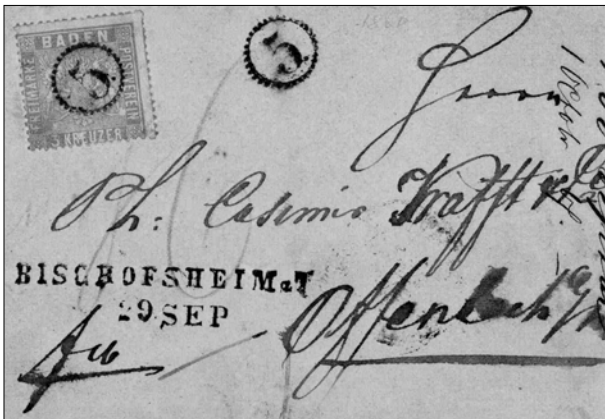 BADEN
FREIMARKE
POSTVEREIN
3 KREUZER
5
5
Herrn
Ph: Casimir Krafft
BISCHOFSHEIM a.T
29. SEP
Offenbach a/M